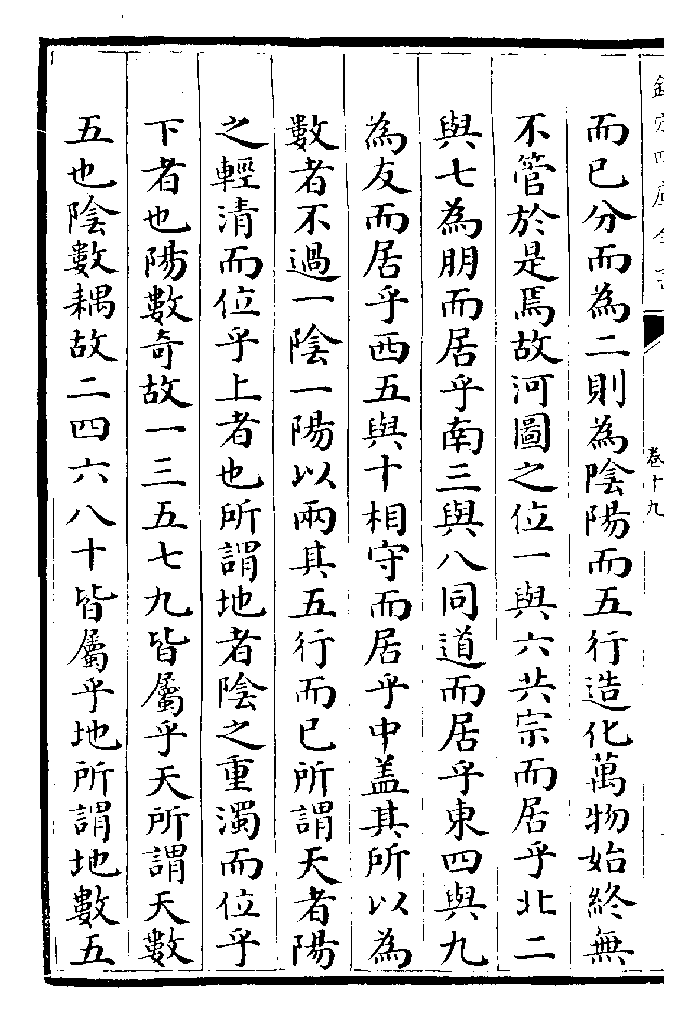 欽定四庫全書
卷十九
而已分而為二則為陰陽而五行造化萬物始終無
不管於是焉故河圖之位一與六共宗而居乎北二
與七為朋而居乎南三與八同道而居乎東四與九
為友而居乎西五與十相守而居乎中蓋其所以為
數者不過一陰一陽以兩其五行而已所謂天者陽
之輕清而位乎上者也所謂地者陰之重濁而位乎
下者也陽數奇故一三五七九皆屬乎天所謂天數
五也陰數耦故二四六八十皆屬乎地所謂地數五